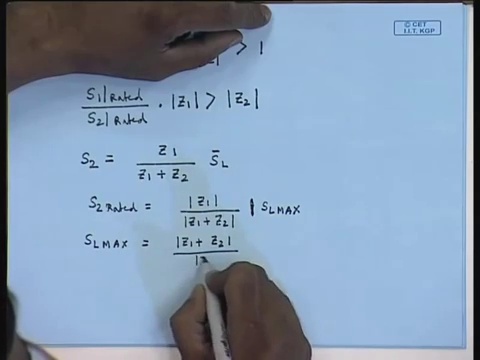 © CET
I.I.T. KGP
> 1
S1|Rated / S2|Rated · |Z1| > |Z2|
S2 = Z1 / (Z1 + Z2) S̄L
S2 Rated = |Z1| / |Z1 + Z2| SLMAX
SLMAX = |Z1 + Z2| /